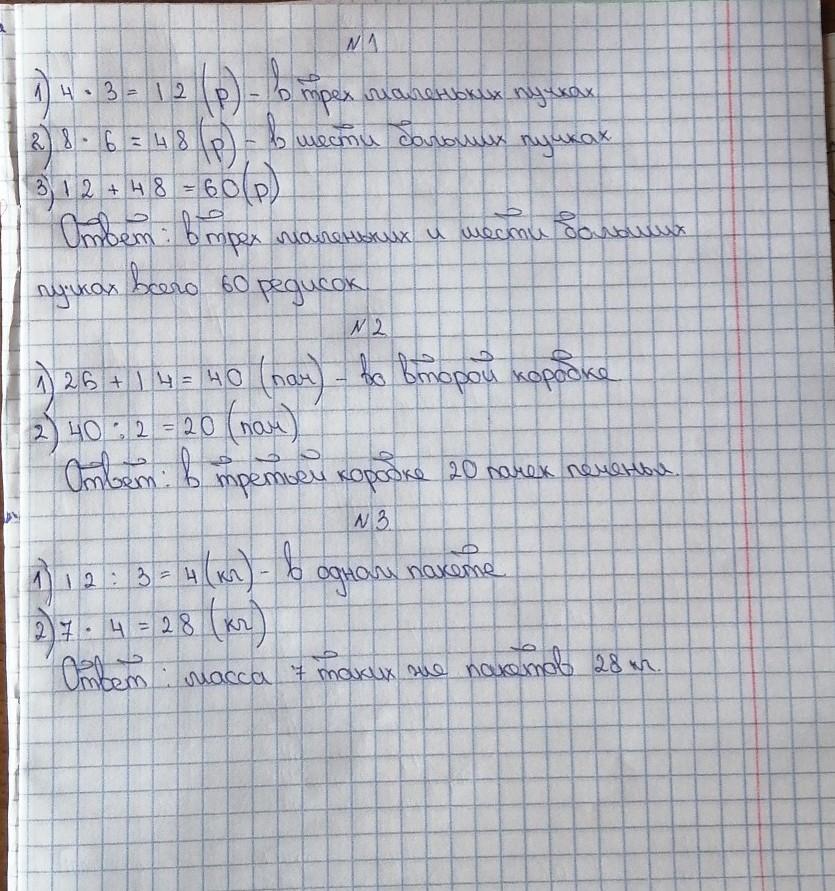 N 1
1) 4 · 3 = 12 (р) – в трех маленьких пучках
2) 8 · 6 = 48 (р) – в шести больших пучках
3) 12 + 48 = 60 (р)
Ответ: в трех маленьких и шести больших
пучках всего 60 редисок
N 2
1) 26 + 14 = 40 (пач) – во второй коробке
2) 40 : 2 = 20 (пач)
Ответ: в третьей коробке 20 пачек печенья.
N 3
1) 12 : 3 = 4 (кг) – в одном пакете
2) 7 · 4 = 28 (кг)
Ответ: масса 7 таких же пакетов 28 кг.